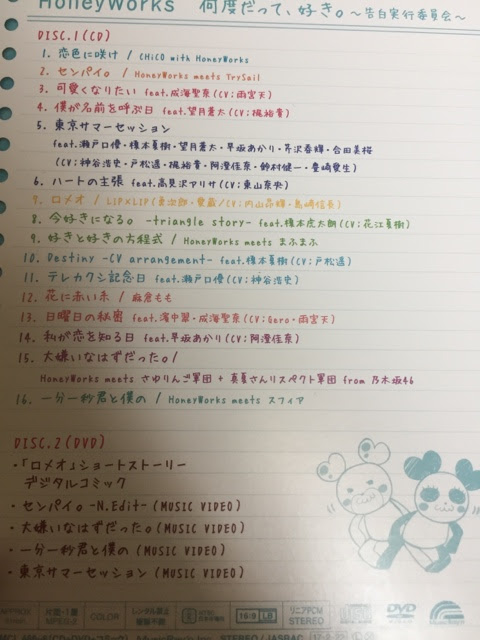 HoneyWorks 何度だって、好き。～告白実行委員会～
DISC.1(CD)
1. 恋色に咲け / CHiCO with HoneyWorks
2. センパイ。 / HoneyWorks meets TrySail
3. 可愛くなりたい feat.成海聖奈(CV:雨宮天)
4. 僕が名前を呼ぶ日 feat.望月蒼太(CV:梶裕貴)
5. 東京サマーセッション
feat.瀬戸口優・榎本夏樹・望月蒼太・早坂あかり・芹沢春輝・合田美桜
(CV:神谷浩史・戸松遥・梶裕貴・阿澄佳奈・鈴村健一・豊崎愛生)
6. ハートの主張 feat.高見沢アリサ(CV:東山奈央)
7. ロメオ / LIP×LIP(勇次郎・愛蔵/CV:内山昂輝・島﨑信長)
8. 今好きになる。 -triangle story- feat.榎本虎太朗(CV:花江夏樹)
9. 好きと好きの方程式 / HoneyWorks meets まふまふ
10. Destiny -CV arrangement- feat.榎本夏樹(CV:戸松遥)
11. テレカクシ記念日 feat.瀬戸口優(CV:神谷浩史)
12. 花に赤い糸 / 麻倉もも
13. 日曜日の秘密 feat.濱中翠・成海聖奈(CV:Gero・雨宮天)
14. 私が恋を知る日 feat.早坂あかり(CV:阿澄佳奈)
15. 大嫌いなはずだった。/
HoneyWorks meets さゆりんご軍団 + 真夏さんリスペクト軍団 from 乃木坂46
16. 一分一秒君と僕の / HoneyWorks meets スフィア
DISC.2(DVD)
・「ロメオ」ショートストーリー
デジタルコミック
・センパイ。-N.Edit-(MUSIC VIDEO)
・大嫌いなはずだった。(MUSIC VIDEO)
・一分一秒君と僕の (MUSIC VIDEO)
・東京サマーセッション (MUSIC VIDEO)
片面・1層
MPEG-2
COLOR
レンタル禁止
複製不能
16:9 LB
リニアPCM
STEREO
DVD